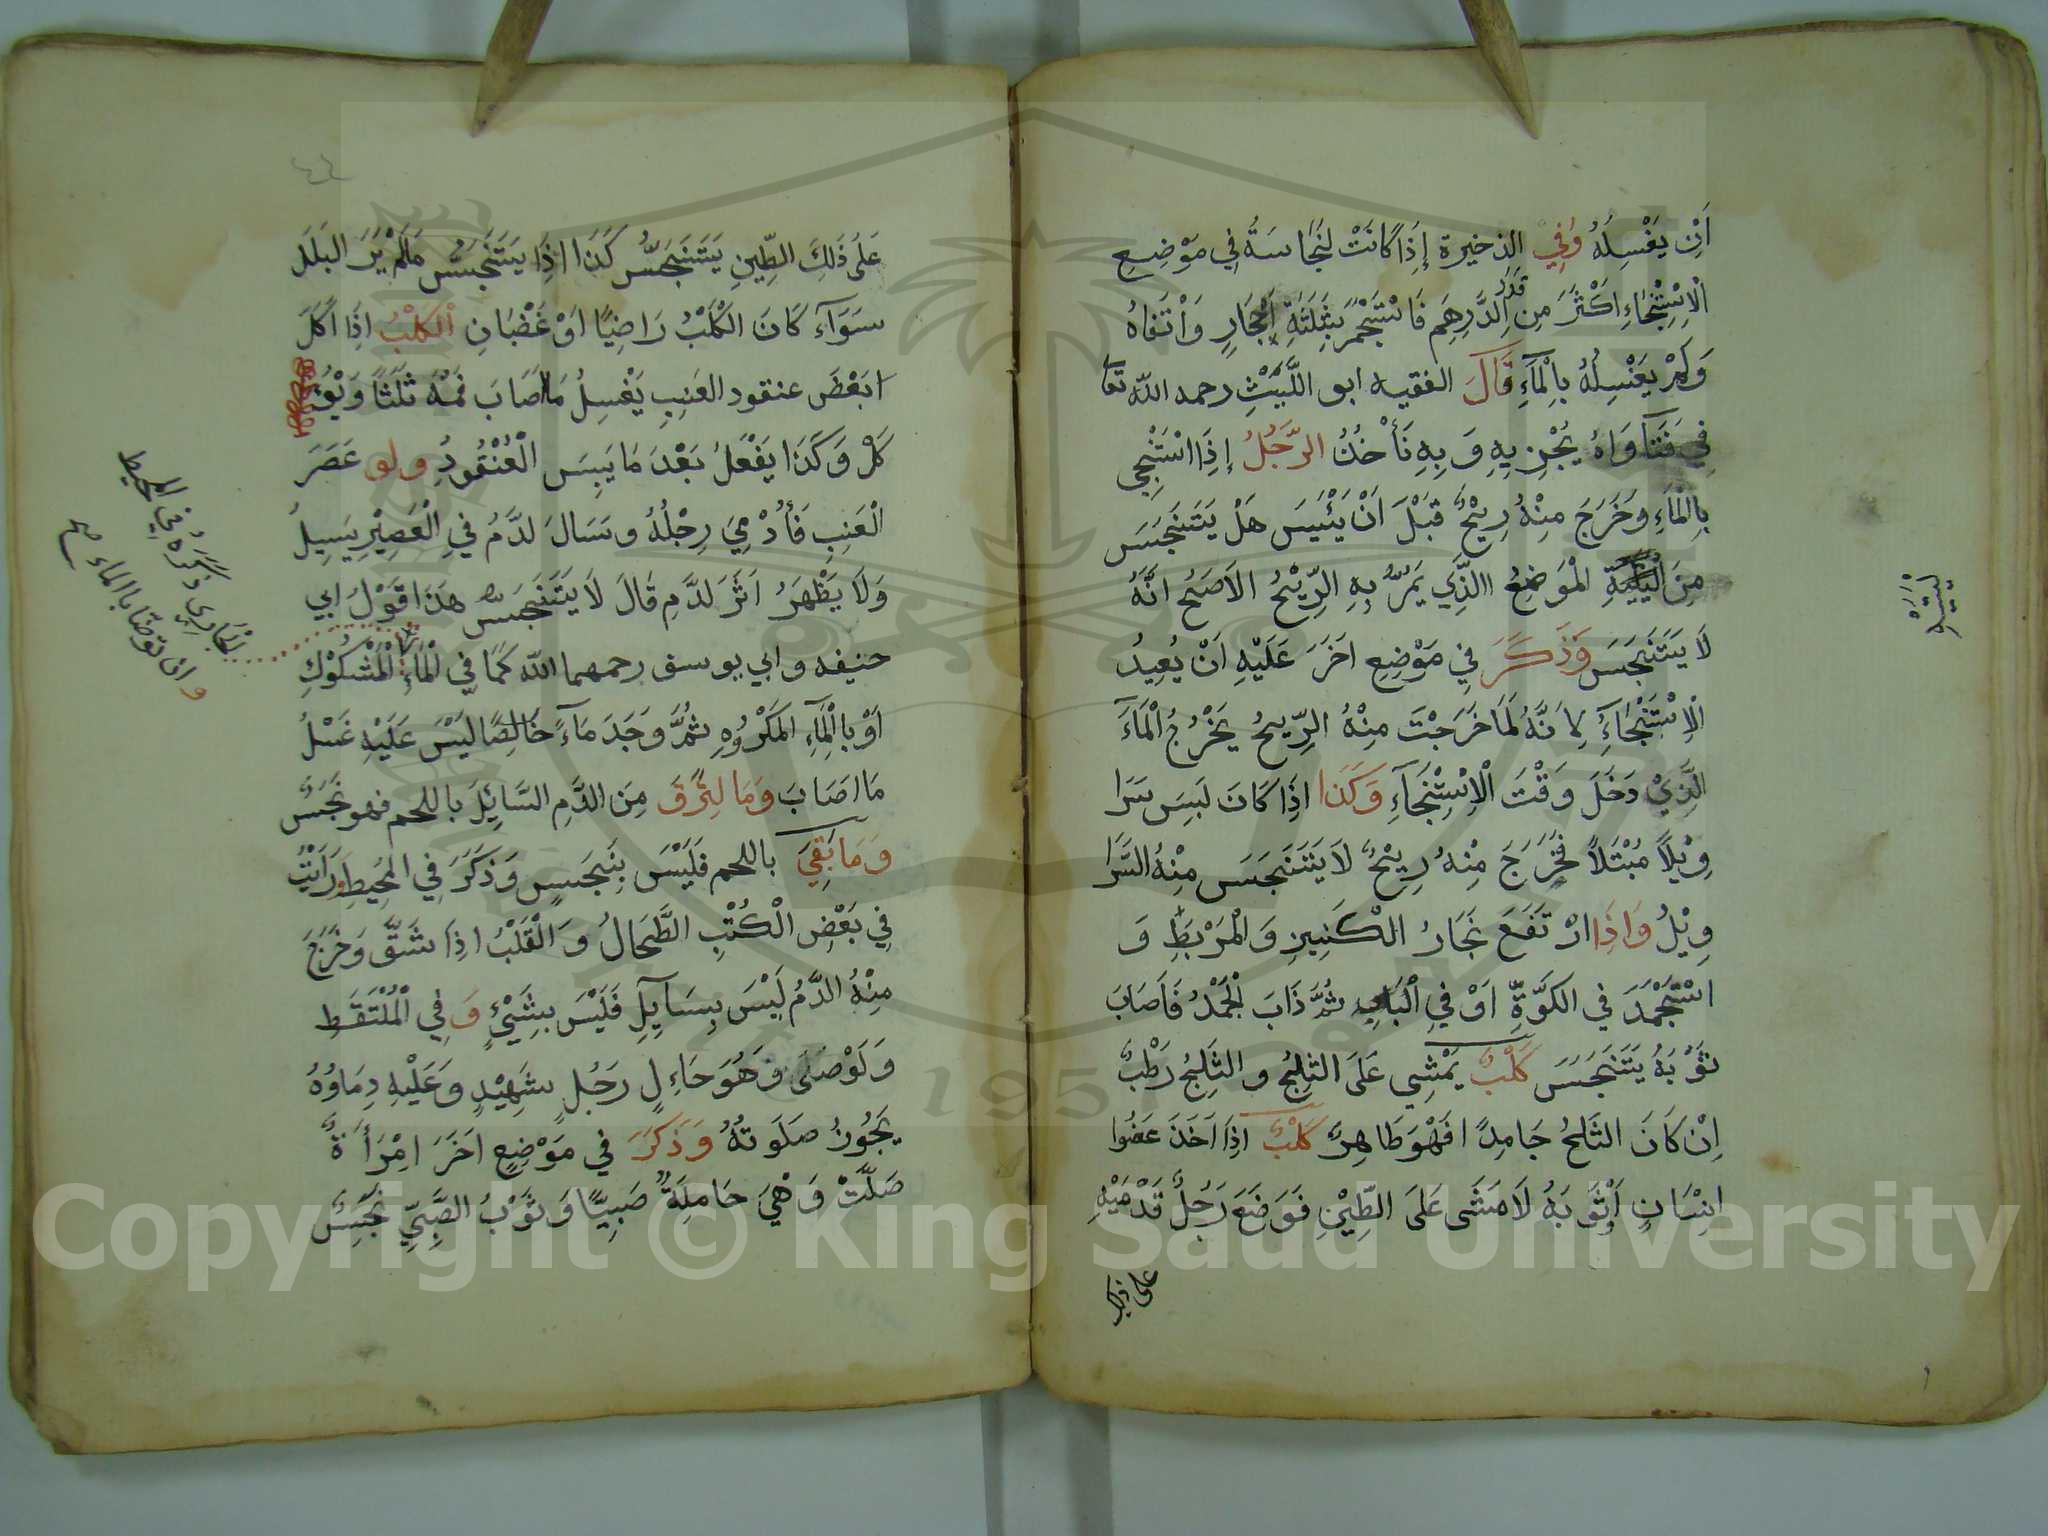 أَنْ يَغْسِلُهُ وَفِيْ الذخيرة إِذَا كَانَتْ لنَجَاسَةُ فِي مَوْضِعِ
الْاِسْتِنْجَاءِ اَكْثَرَ مِنْ قَدَرِ الدَّرِهَمِ فَاسْتَجْمَرَ بِثَلَثَةِ اَحْجَارٍ وَاَنْقَاهُ
وَلَمْ يَغْسِلُهُ بِالْمَآءِ قَالَ الفقيه ابو اللَّيْثِ رحمه اللّه تعا
فِي فَتَاوَاهُ يُجْزِيهِ وَبِهِ نَأْخُذُ الرَّجُلُ إِذَا اسْتَنْجِى
بِالْمَاءِ وَخَرَجَ مِنْهُ رِيْحٌ قَبْلَ اَنْ يَئْيِسَ هَلْ يَتَنَجَسَ
مِنَ الْيَتِهِ الْمَوَضِعُ االذِّي يَمَرُّ بِهِ الرِّيْحُ الاَصَحُ انَّهُ
لَا يَتَنَجَسَ وَذَكَرَ فِي مَوْضِعِ اخَرَ عَلَيْهِ اَنْ يُعِيدُ
الْاِسْتَنْجَاءَ لِاَنَّهُ لَمَا خَرَجَتَ مِنْهُ الرِّيحُ يَخْرُجُ الْمَآءَ
الذِّيْ دَخَلَ وَقْتَ الْاِسْتِنْجَآءِ وَكَذَا اذِا كَانَ لَبِسَ سَرَا
وِيْلاً مُبْتَلاً فَخَرَجَ مِنْهُ رِيْحٌ لاَ يَتَنَجَسَ مِنْهُ السَّرَا
وِيْلُ وَاِذَا ارْتَفَعَ نَجَارُ الْكَنِيِفِ وَالْمَرْبَطِ وَ
اسْتَجْمَدَ فِي الكَوَّةِ اَوْ فِي الْبَابِ ثُمَّ ذَابَ لْجَمْدُ فَاَصَابَ
ثَوْبَهُ يَتَنَجَسَ كَلْبٌ يَمْشِي عَلَى الثلِجُ و الثَلِجُ رَطْبٌ
اِنْ كَانَ الثَلحُ جَامِدًا فَهْوَ طَاهِرٌ كَلْبٌ اذِا اَخَذَ عضُوا
انِسْانٍ اَوْثَوبَهُ لَا مَشَى عَلَى الطِّيْنِ فَوَضَعَ رَجُلٌ قَدْمَيْهِ
على ذلك
لْيَتِهِ
عَلىٰ ذَلِكَ الطِّينِ يَتَنَجَسُّ كَذَا اذِا يَتَنَجَسُّ مَالَمْ يَرَ البَلَلَ
سَوَآءَ كَانَ الكَلْبُ رَاضِيًا اوْ غَضْبَانِ الْكَلْبُ اذِا اكَلَ
ابَعْضَ عنقود العَنِبِ يَغْسِلُ مَا اصَابَ فَمُهُ ثَلَثًا وَيُؤ
كَلْ وَكَذَا يَفْعَلُ بَعْدَ مَا يَبِسَ الْعُنْقُودُ ولو عَصَرَ
الْعَنِبِ فَأُدْمِيَ رِجْلُهُ وسَالَ لدَّمُ فيِ الْعَصِيْرِ يَسِيلُ
وَلَا يَظْهَرُ اَثَرَ لدَّمِ قَالَ لَا يَتَنَجَسُّ هَذَا قَوْلَ ابي
حنيفه وابي يوسف رحمهما اللّه كَمَا فِي الْمَاءِ الْمَشْكُوْكِ
اَوْ بِالْمَآءِ المَكْرُوْهِ ثُمَّ وَجَدَ مَآءً خَالِصًا لَيْسَ عَلَيْهِ غَسْلُ
مَا اصَابَ وَمَا لِزَقَ مِنَ الدَّمِ السَّائِلَ باللحم فهو نَجَسٌ
وَمَا بَقِيَ باللحم فَلَيْسَ بِنَجَسٍ وَذَكَرَ فِي المُحِيطِ وَرَأَيْتُ
فِي بَعْضِ الْكُتْبِ الطَّحَالُ وَالْقَلْبُ اذِا شَقَّ وَخَرَجَ
مِنْهُ الدَّمُ لَيْسَ بِسَآيِلِ فَلَيْسَ بِشَيْءٍ وَفِي الْمُلْتَقَطِ
وَلَوْ صَلَى وَهُوَ حَاءِلٍ رَجُلٍ شَهِيْدٍ وَعَلَيْهِ دِمَاؤُهُ
يَجُوزُ صَلَوتُهُ وَذَكَرَ فِي مَوْضِعٍ اخَرَ امْرَأَةً
صَلَّتْ وَهْيَ حَامِلَةٌ صَبِيًّا وَثَوْبُ الصَّبِيِّ نَجَسٌ
لْجَارِي ذَكَرَهُ فِي المحيط
وان توضّا بالماء صح
Copyright © King Saud University
1957